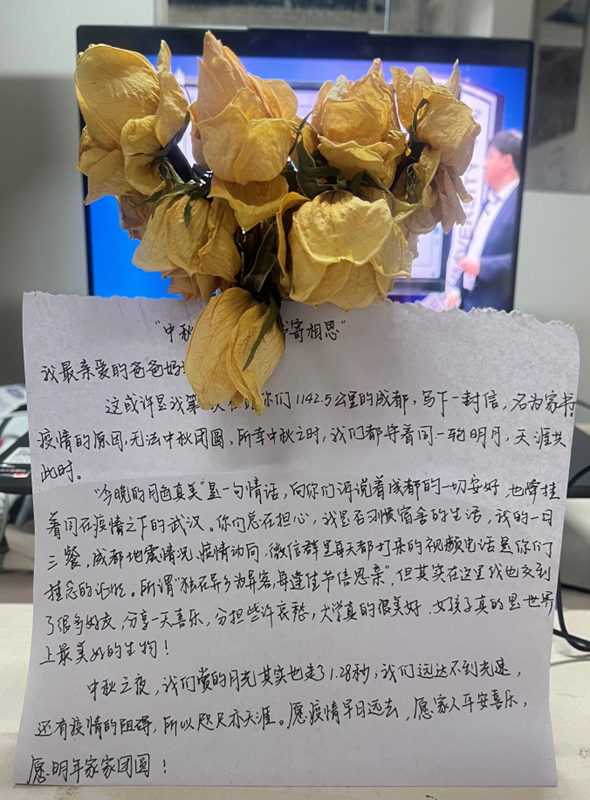 "中秋 寄相思"
我最亲爱的爸爸妈
这或许是我第 你们1142.5公里的成都,写下一封信,名为家书
疫情的原因,无法中秋团圆,所幸中秋之时,我们都守着同一轮明月,天涯共
此时。
"今晚的月色真美"是一句情话,向你们诉说着成都的一切安好,也牵挂
着同在疫情之下的武汉。你们总在担心,我是否习惯宿舍的生活,我的一日
三餐,成都地震情况,疫情动向,微信群里每天都打来的视频电话是你们
挂念的 。所谓"独在异乡为异客,每逢佳节倍思亲",但其实在这里我也交到
了很多好友,分享一天喜乐,分担些许哀愁,大学真的很美好,女孩子真的是世界
上最美好的生物!
中秋之夜,我们赏的月光其实也走了1.28秒,我们远达不到光速,
还有疫情的阻碍,所以咫尺亦天涯。愿疫情早日远去,愿家人平安喜乐,
愿明年家家团圆!